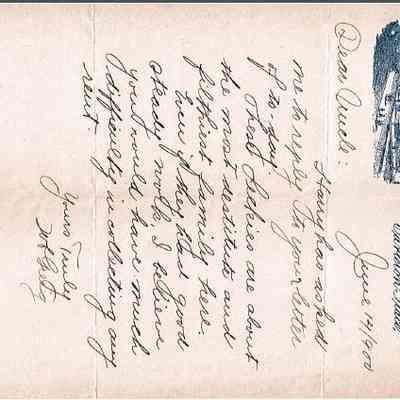 June 14/1900
Dear Uncle:
Harry has asked
me to reply to your letter
of to-day. These are about
the most destitute and
filthiest family here.
Even if they had good
steady work I believe
you would have much
difficulty in collecting any
rent
Yours Truly